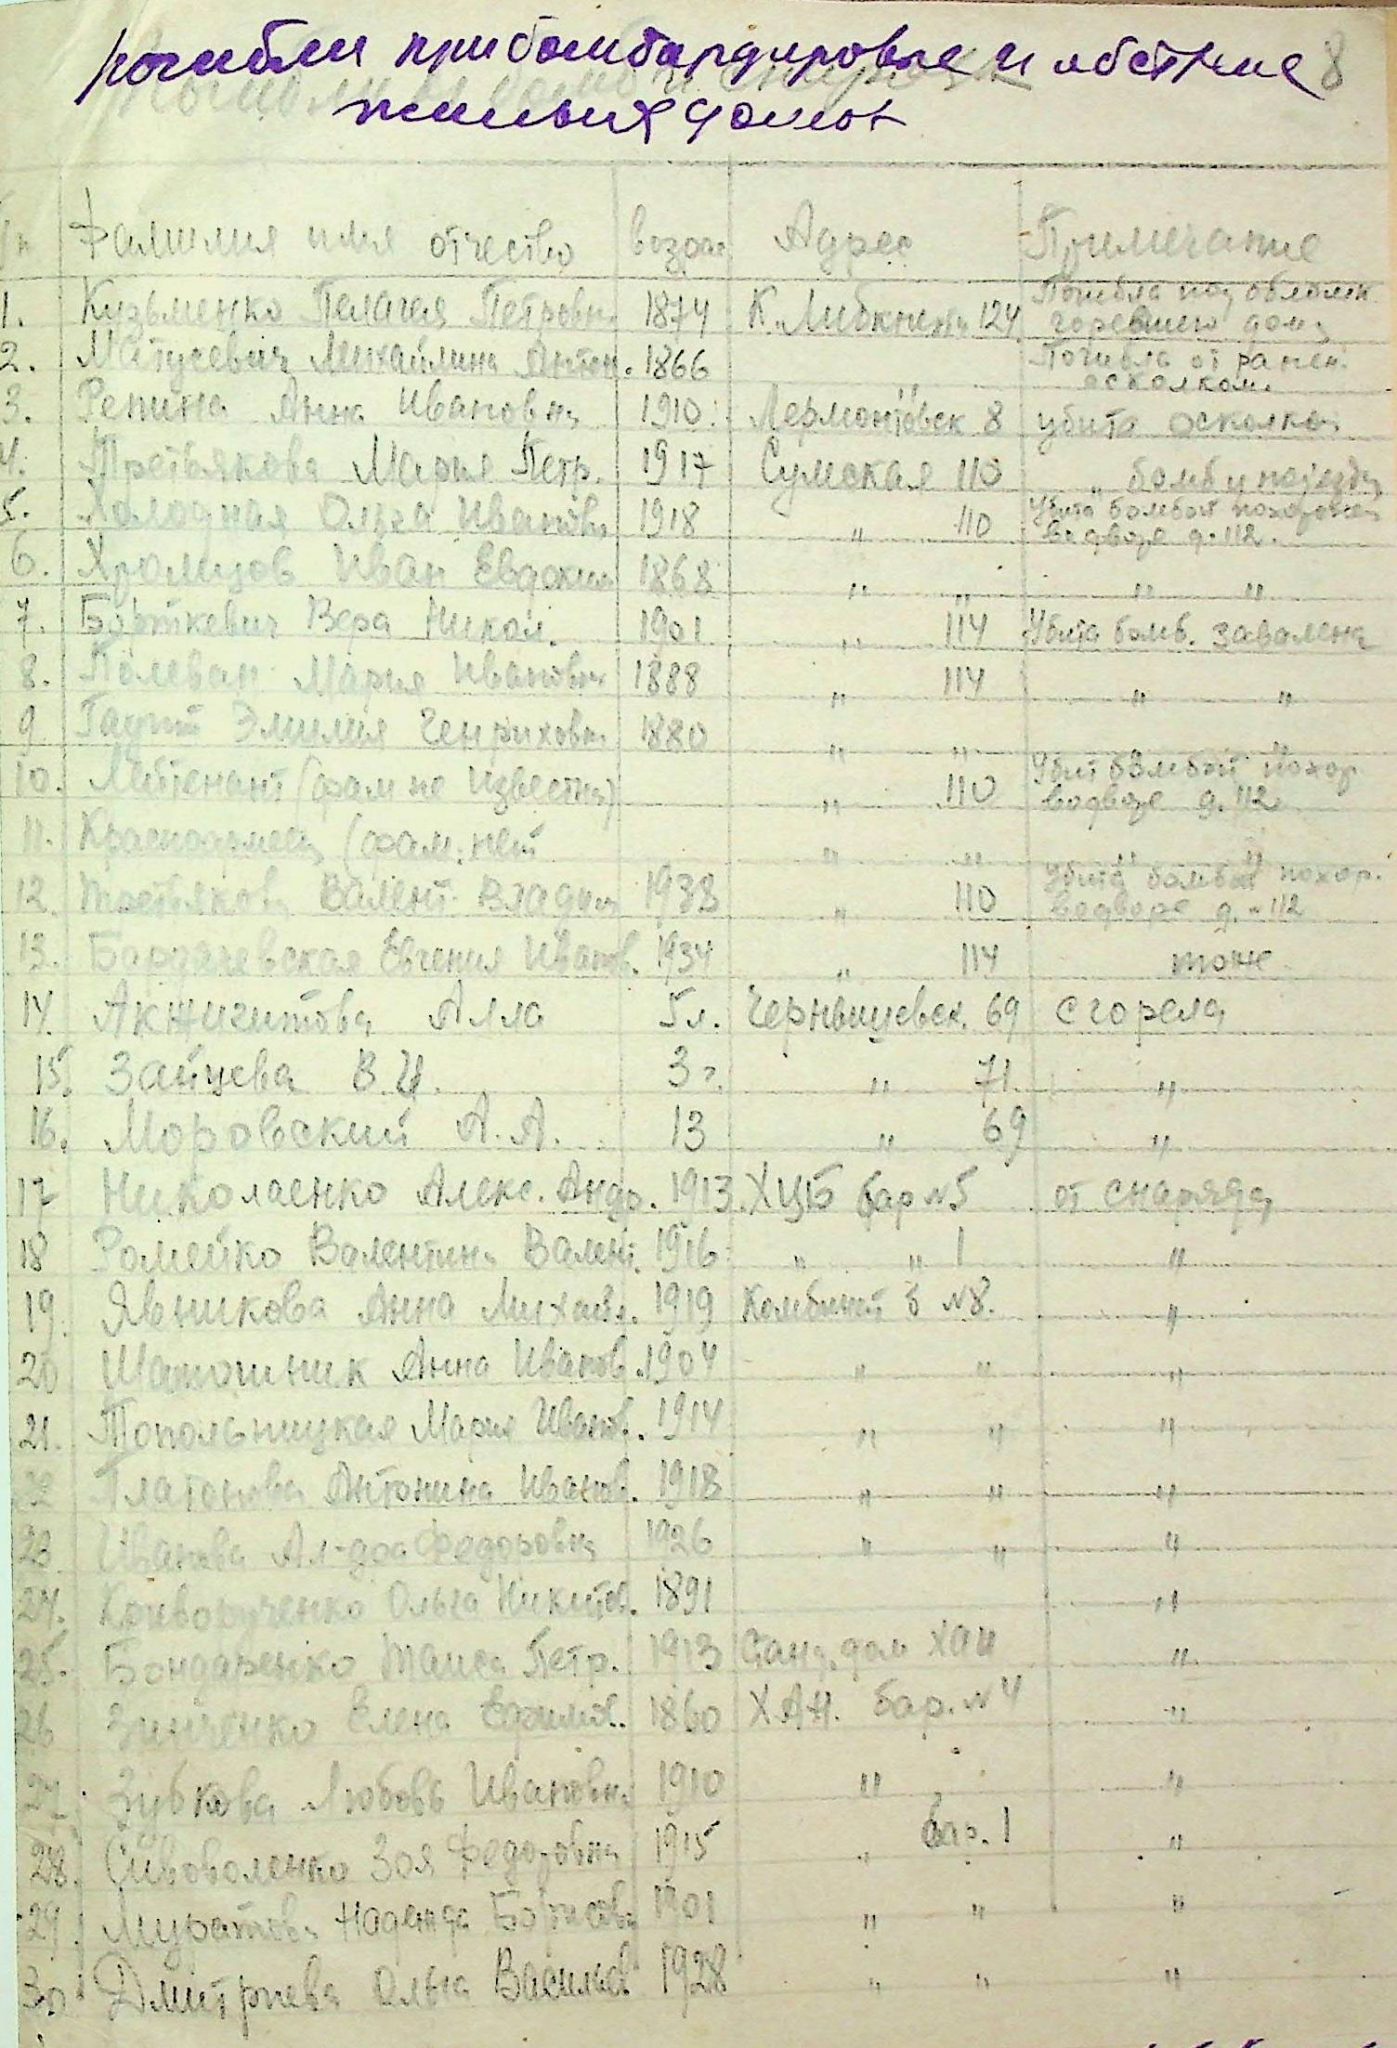 погибли при бомбардировке и обстрле 8
жилых домов
п Фамилия имя отчество возрас Адрес Примечание
1. Кузьменко Пелагея Петровн. 1874 К. Либкнехта 124 Погибла под облом.
горевшего дома
2. Матусевич Михайлина Антон. 1866 " Погибла от ранен.
осколком.
3. Репина Анна Ивановна 1910. Лермонтовск 8 убита осколком
4. Третьякова Мария Петр. 1917 Сумская 110 " бомб у подъезда
5. Холодная Ольга Ивановн 1918 " 110 Убита бомбой похоронен
во дворе д. 112.
6. Хромцов Иван Евдоким 1868 " " " "
7. Борткевич Вера Никол. 1901 " 114 Убита бомб. завалена
8. Полеван Мария Ивановн 1888 " 114 " "
9 Гаупт Эмилия Генриховн. 1880 " " " "
10. Лейтенант (фам не известна) " 110 Убит бомбой похор
во дворе д. 112
11. Красноармеец (фам. нет " " " "
12. Третьяков Валент. Владим 1938 " 110 Убита бомбой похор.
во дворе д. 112
13. Бардачевская Евгения Иванов. 1934 " 114 тоже
14. Акжигитова Алла 5 л. Чернышевск. 69 сгорела
15. Зайцева В. И. 3 г. " 71. "
16. Моровский А. А. 13 " 69 "
17 Николаенко Алекс. Андр. 1913. ХЦБ бар №5 от снаряда
18 Ромейко Валентина Валент. 1916 " " 1 "
19. Явникова Анна Михайл. 1919 Комбинат б №8. "
20 Шапошник Анна Иванов. 1904 " " "
21. Топольницкая Мария Иванов. 1914 " " "
22 Платонова Антонина Иванов. 1918 " " "
23 Иванова Ал-дра Федоровна 1926 " " "
24. Криворученко Ольга Никитов. 1891 "
25. Бондаренко Таиса Петр. 1913 Станд. дом ХАИ "
26 Зинченко Елена Ефимов. 1860 Х.А.И. бар. №4 "
27. Зубкова Любовь Ивановна 1910 " "
28. Сивоволенко Зоя Федоровна 1915 " бар. 1 "
29. Муратова Надежда Борисовн 1901 " " "
30 Дмитриева Ольга Васильев 1928 " " "